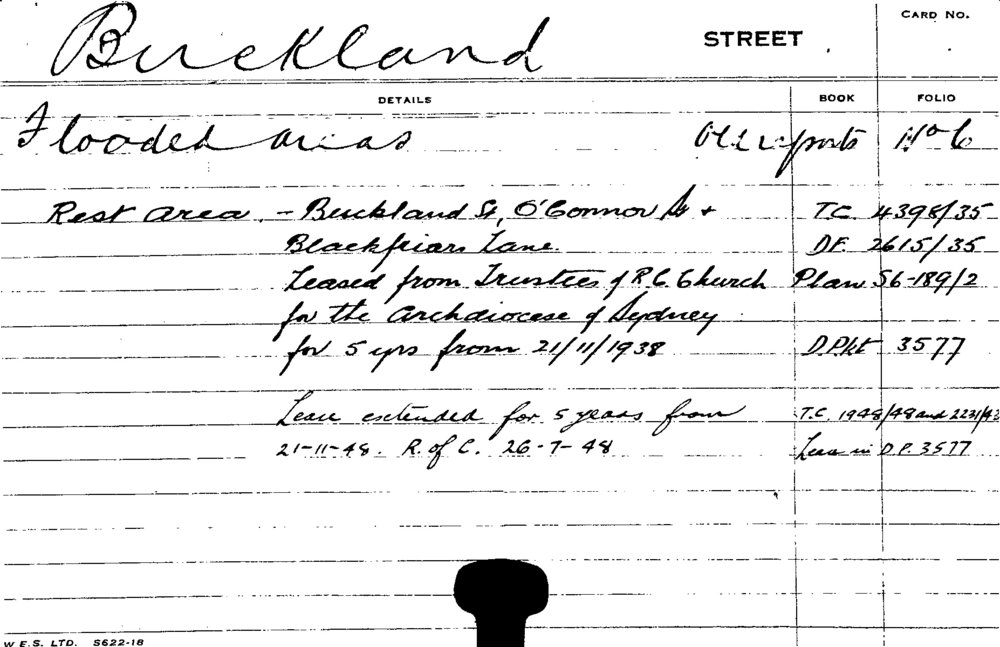 Buckland STREET CARD No.
DETAILS BOOK FOLIO
Flooded areas Old reports No 6
Rest area - Buckland St, O'Connor St + T.C. 4398/35
Blackfriars Lane. DF. 2615/35
Leased from Trustees of R.C. Church Plan S6-189/2
for the Archdiocese of Sydney
for 5 yrs from 21/11/1938 D.Pkt 3577
Lease extended for 5 years from T.C. 1948/48 and 2231/43
21-11-48. R. of C. 26-7-48 Lease in D.P. 3577
W.E.S. LTD. S622-18